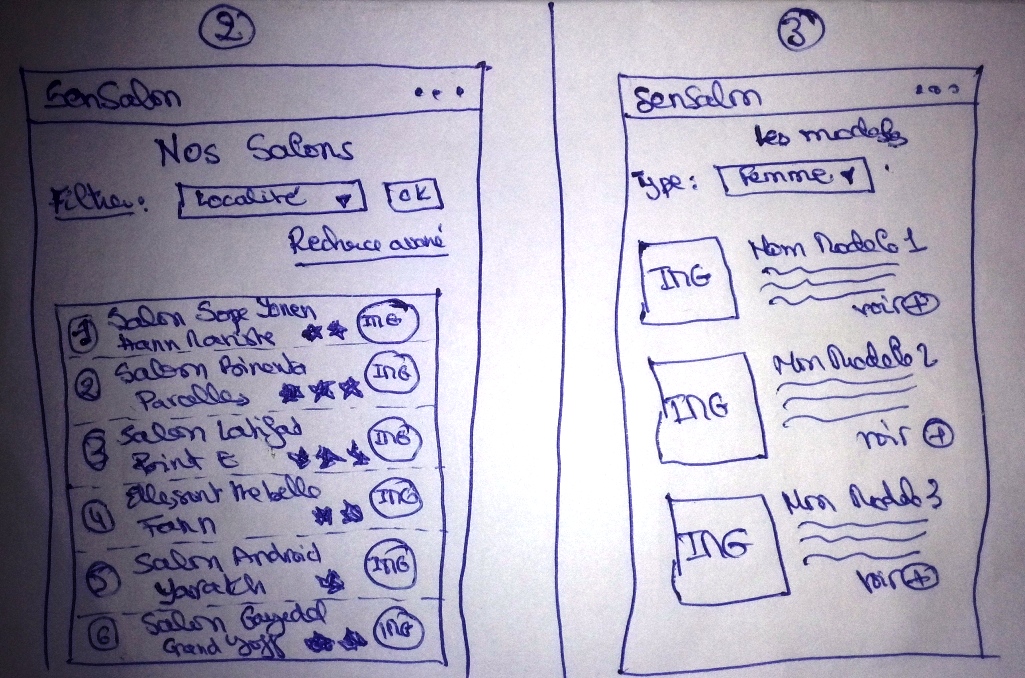 2
SenSalon
Nos Salons
Filtrer: Localité OK
Recherce avancé
1 Salon Sope
Hann Mariste IMG
2 Salon
Parcelles IMG
3 Salon Latifad
Point E IMG
4
Fann IMG
5 Salon Android
Yarakh IMG
6 Salon
Grand Yoff IMG
3
SenSalon
Les models
Type: Femme
IMG
Nom Modele 1
voir +
IMG
Nom Modele 2
voir +
IMG
Nom Modele 3
voir +